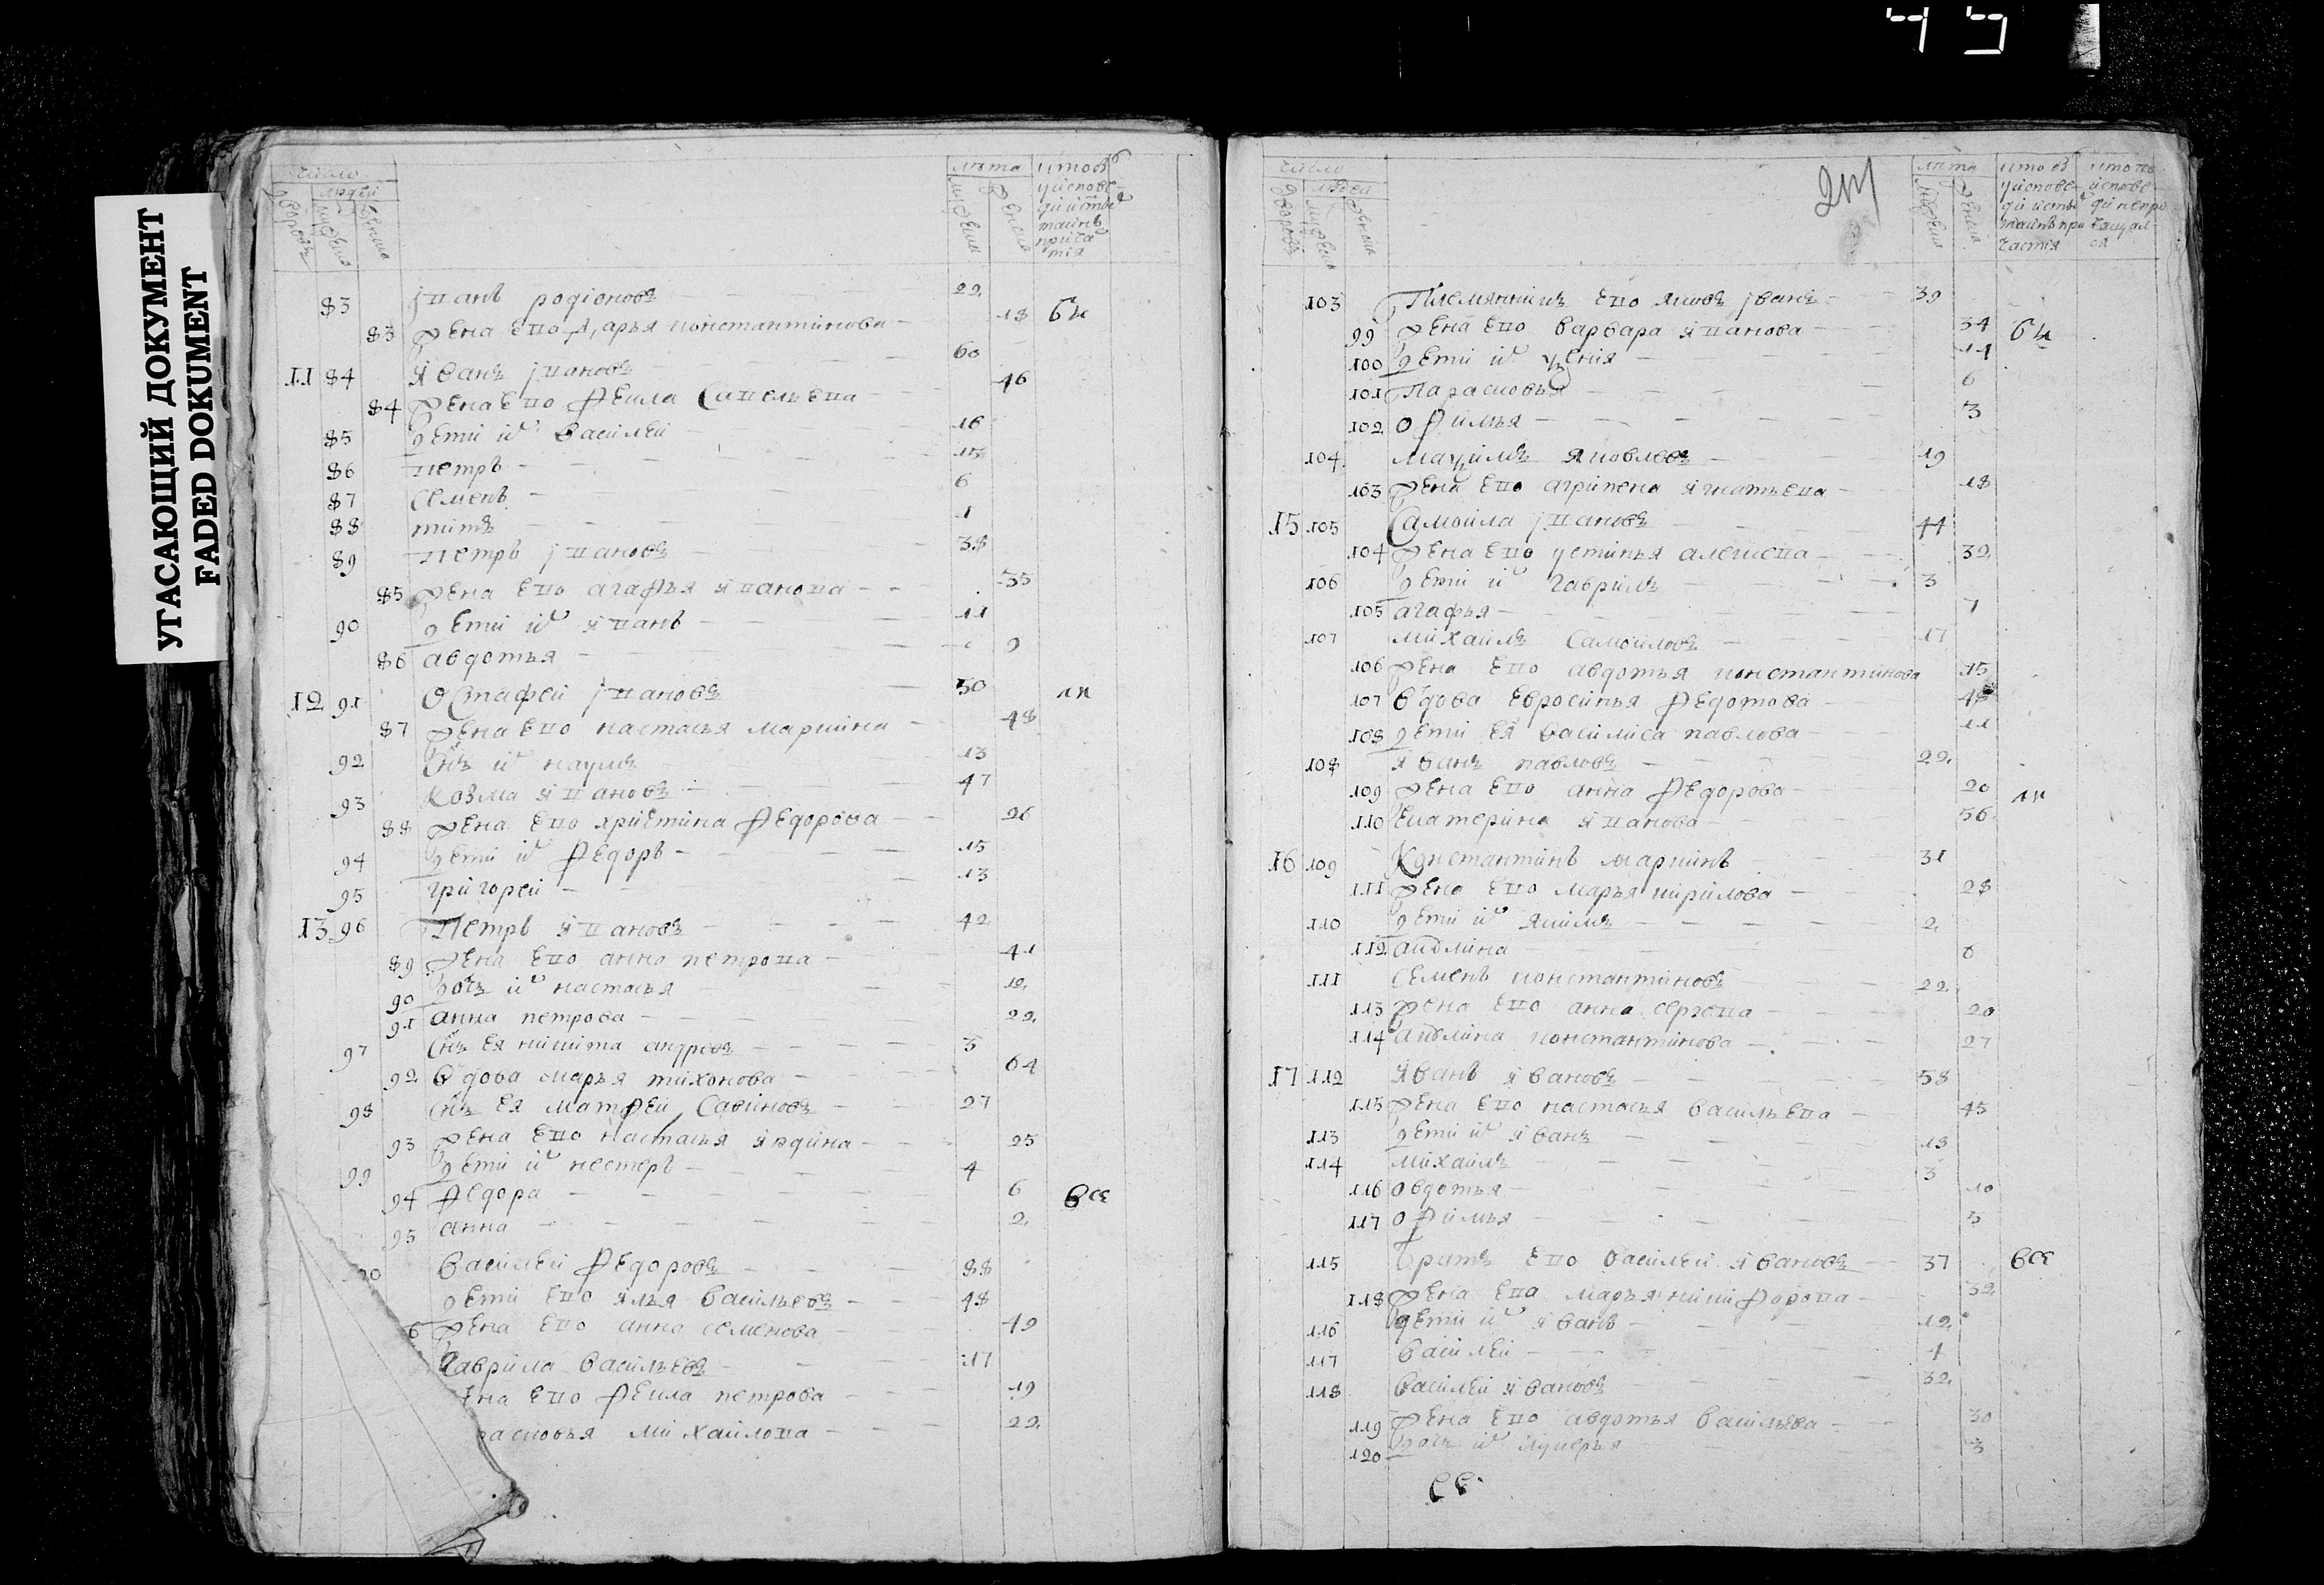 УГАСАЮЩИЙ ДОКУМЕНТ
FADED DOKUMENT
число
дворовъ
людей
мужеска
женска
лѣта
мужеска
женска
83 іванъ родіоновъ 22
83 жена его дарья константинова 18
11 84 иванъ івановъ 60
84 жена его Фекла Савельева 46
85 дети их василей 16
86 петръ 15
87 семенъ 6
88 титъ 1
89 петръ івановъ 38
85 жена его агафья иванова 35
90 дети их иванъ 11
86 авдотья 9
12 91 Остафей івановъ 50
87 жена его настасья маркина 48
92 снъ их наумъ 13
93 козма ивановъ 47
88 жена его христина Федорова 26
94 дети их Федоръ 15
95 григорей 13
13 96 Петръ ивановъ 42
89 жена его анна петрова 41
90 дочь их настасья 12
91 анна петрова 22
97 снъ ея никита 3
92 вдова марья тихонова 64
98 снъ ея матфей Савиновъ 27
93 жена его настасья 25
99 дети их нестеръ 4
94 Федора 6 все
95 анна 2
василей Федоровъ 88
дети его илья васильевъ 48
6 жена его анна семенова 49
гаврила васильевъ 17
ена его Фекла петрова 19
расковья михайлова 22
число
дворовъ
людей
мужеска
женска
лѣта
мужеска
женска
103 Племянникъ его яковъ іванъ 39
99 жена его варвара иванова 34
100 дети их 14
101 Парасковья 6
102 офимья 3
104 яковлевъ 19
103 жена его агрипена игнатьева 18
15 105 Самойла івановъ 44
104 жена его устинья алексева 32
106 дети их гаврилъ 3
105 агафья 7
107 михайлъ самойловъ 17
106 жена его авдотья константинова 15
107 вдова евросинья Федотова
108 дети ея василиса павлова 11
108 иванъ павловъ 22
109 жена его анна Федорова 20
110 екатерина иванова 56
16 109 Константинъ маркинъ 31
111 жена его марья кирилова 28
110 дети их якимъ 2
112 акулина 6
111 семенъ константиновъ 22
113 жена его анна сергева 20
114 акулина константинова 27
17 112 иванъ ивановъ 58
115 жена его настасья васильева 45
113 дети их иванъ 18
114 михайлъ 3
116 овдотья 10
117 офимья 5
115 братъ его василей ивановъ 37 все
118 жена его марья никифорова 32
116 дети их иванъ 12
117 василей 4
118 василей ивановъ 32
119 жена его авдотья васильева 30
120 дочь их лукерья 3